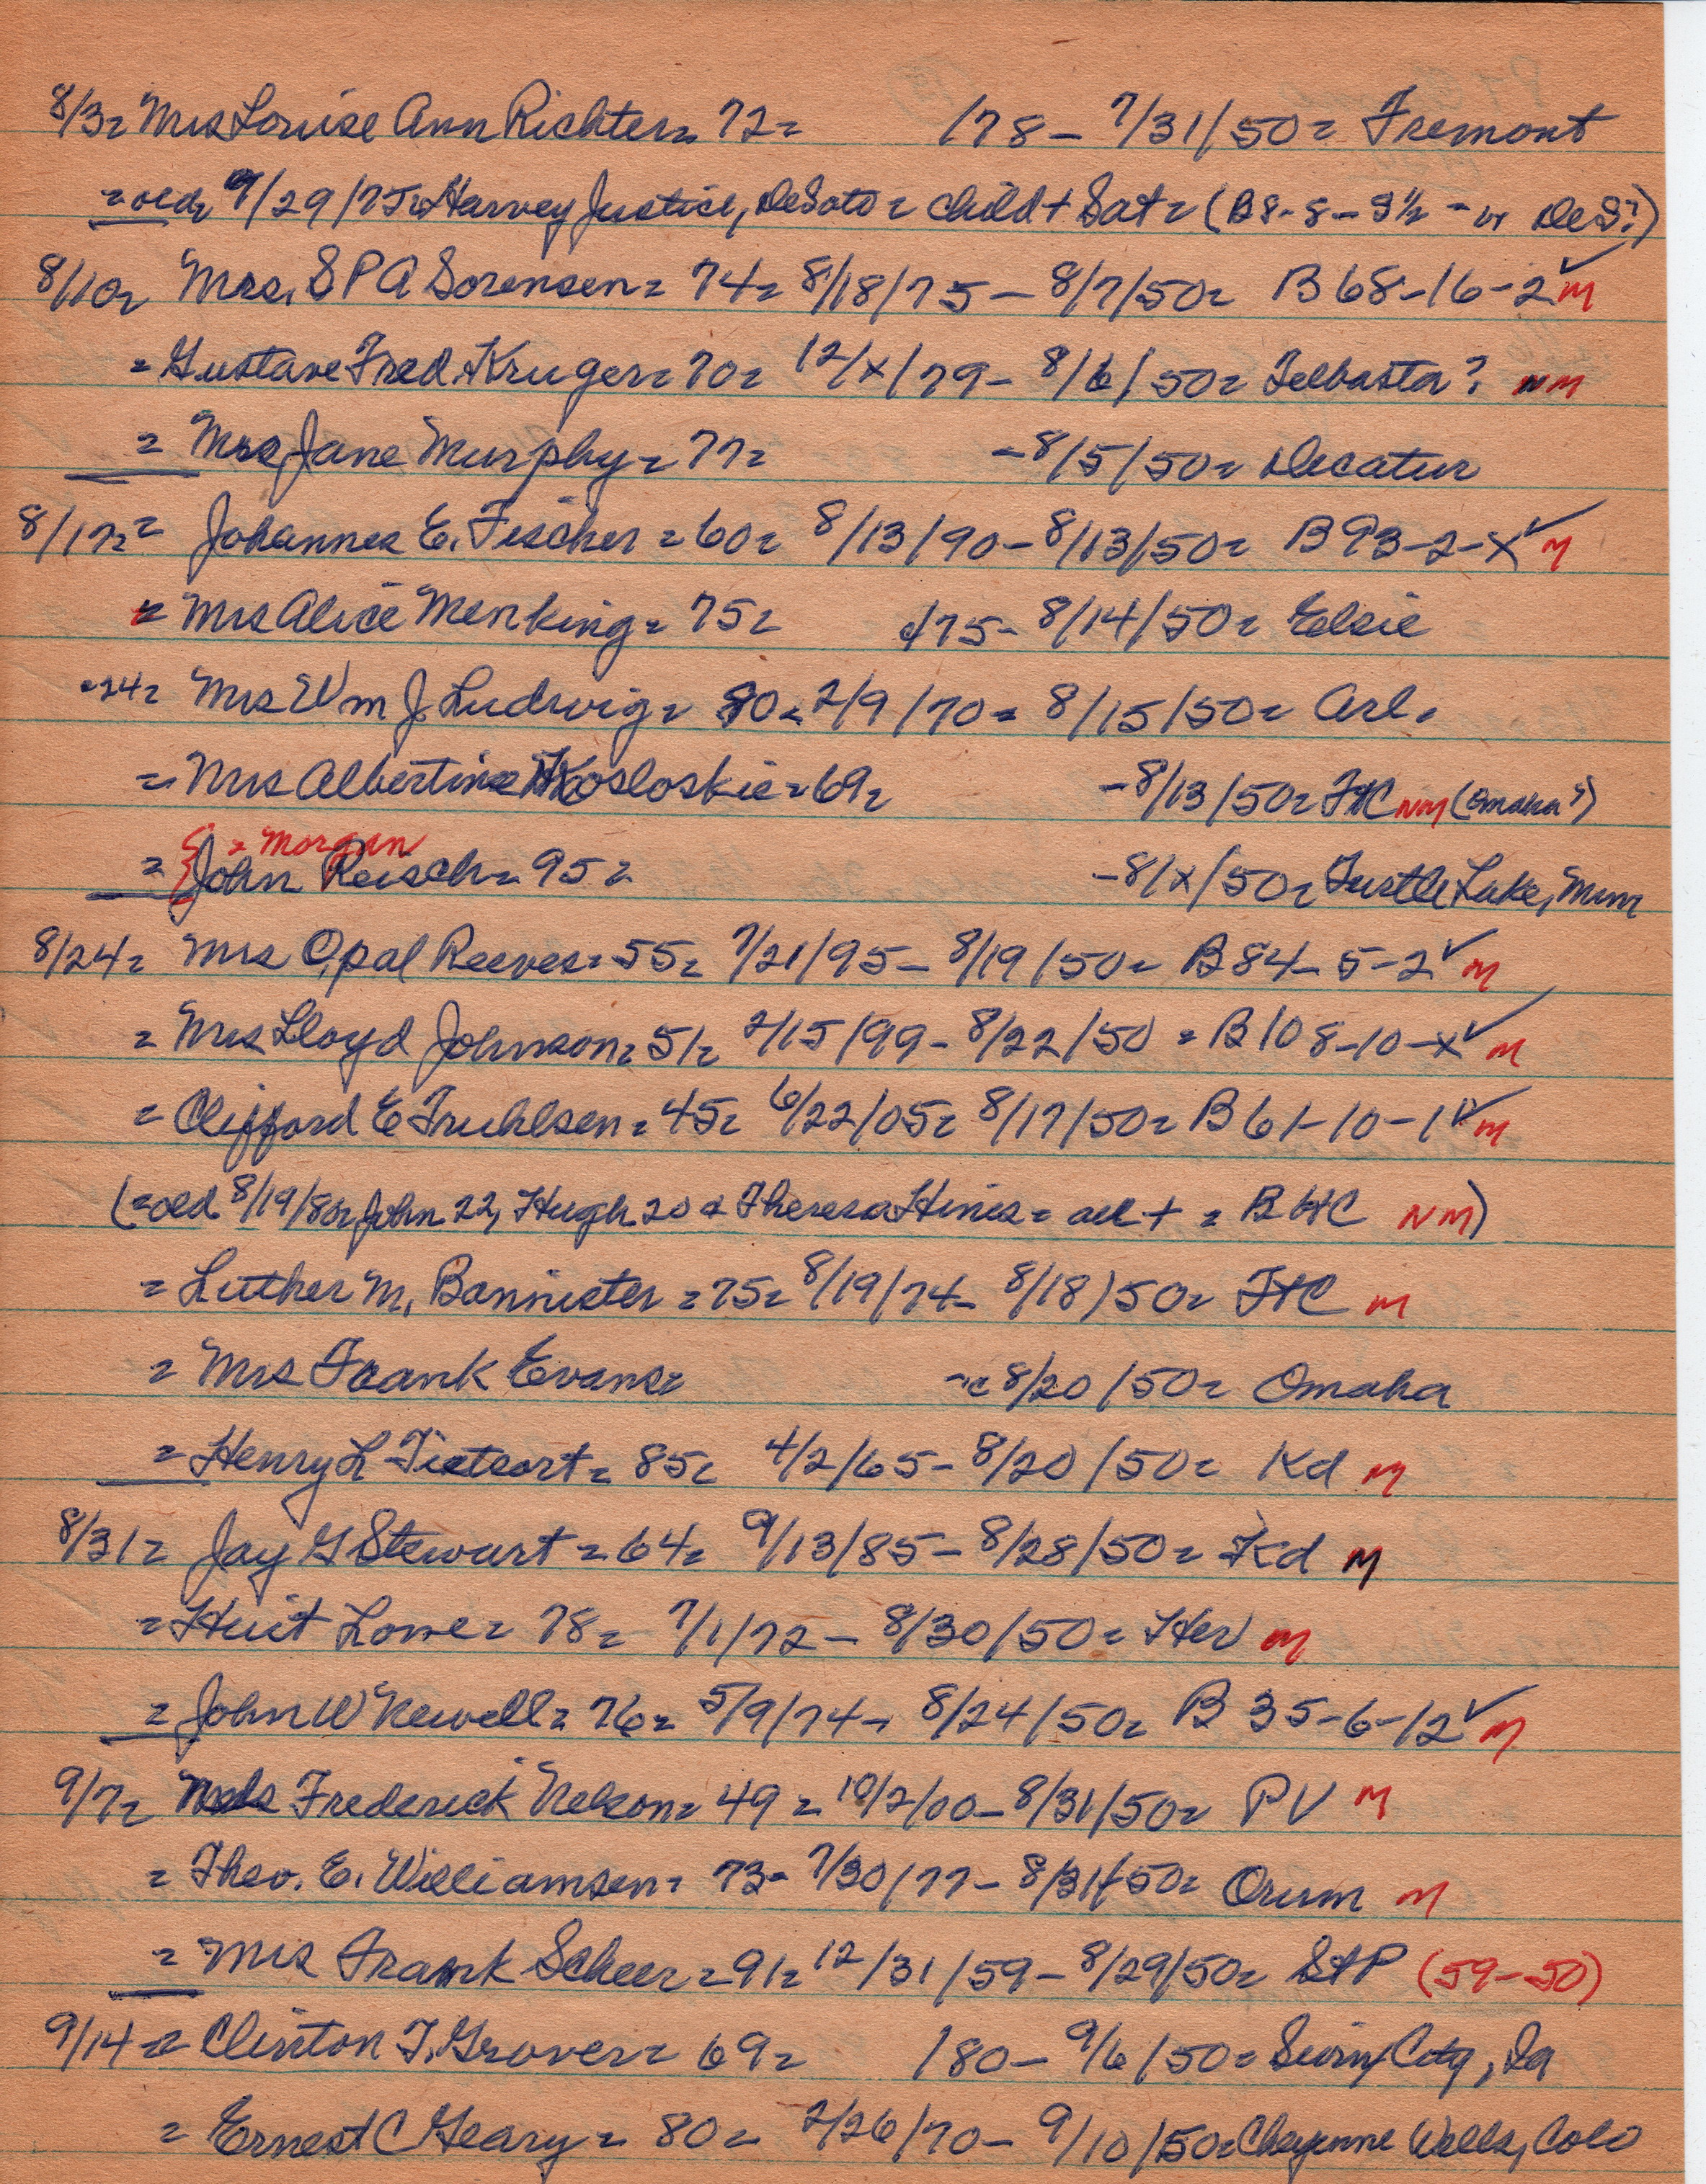 8/3= Mrs Louise Ann Richter= 72= /78 - 7/31/50= Fremont
=old, 9/29/7 Harvey Justice, DeSoto = child + Sat = (B8-8-3½ - or DeS?)
8/10= Mrs. S P A Sorensen= 74= 8/18/75 - 8/7/50= B 68-16-2 ✓ M
= Gustave Fred Kruger= 70= 12/x/79 - 8/6/50= Telbasta? NM
= Mrs Jane Murphy= 77= - 8/5/50= Decatur
8/17= = Johannes E. Fischer = 60= 8/13/90 - 8/13/50= B 93-2-x ✓ M
= Mrs Alice Menking= 75= c/75 - 8/14/50= Elsie
-24= Mrs Wm J. Ludwig= 80= 2/9/70 = 8/15/50= Arl.
= Mrs Albertine Kosloskie = 69= - 8/13/50= FtC NM (Omaha?)
= Morgan
= { John Reisch= 95= - 8/x/50= Turtle Lake, Minn
8/24= Mrs Opal Reeves= 55= 7/21/95 - 8/19/50= B 84-5-2 ✓ M
= Mrs Lloyd Johnson= 51= 2/15/99 - 8/22/50 = B 108-10-x ✓ M
= Clifford E Fruhlsen= 45= 6/22/05= 8/17/50= B 61-10-1 ✓ M
(=old 8/19/80= John 22, Hugh 20 & Theresa Hines = all + = B HC NM)
= Luther M. Bannister = 75= 8/19/74 - 8/18/50= FtC M
= Mrs Frank Evans= -c 8/20/50= Omaha
= Henry L Tietsort= 85= 4/2/65 - 8/20/50= Kd M
8/31= Jay G Stewart = 64= 9/13/85 - 8/28/50= Kd M
= Huit Lowe= 78= 7/1/72 - 8/30/50= Her M
= John W Newell= 76= 5/9/74 - 8/24/50= B 35-6-12 ✓ M
9/7= Frederick Nelson= 49 = 10/2/00 - 8/31/50= PV M
= Theo. E. Williamsen= 73= 7/30/77 - 8/31/50= Orum M
= Mrs Frank Scheer = 91= 12/31/59 - 8/29/50= StP (59-50)
9/14= Clinton T. Grover= 69= /80 - 9/6/50= City, Ia
= Ernest C Geary= 80= 2/26/70 - 9/10/50= Cheyenne Wells, Colo